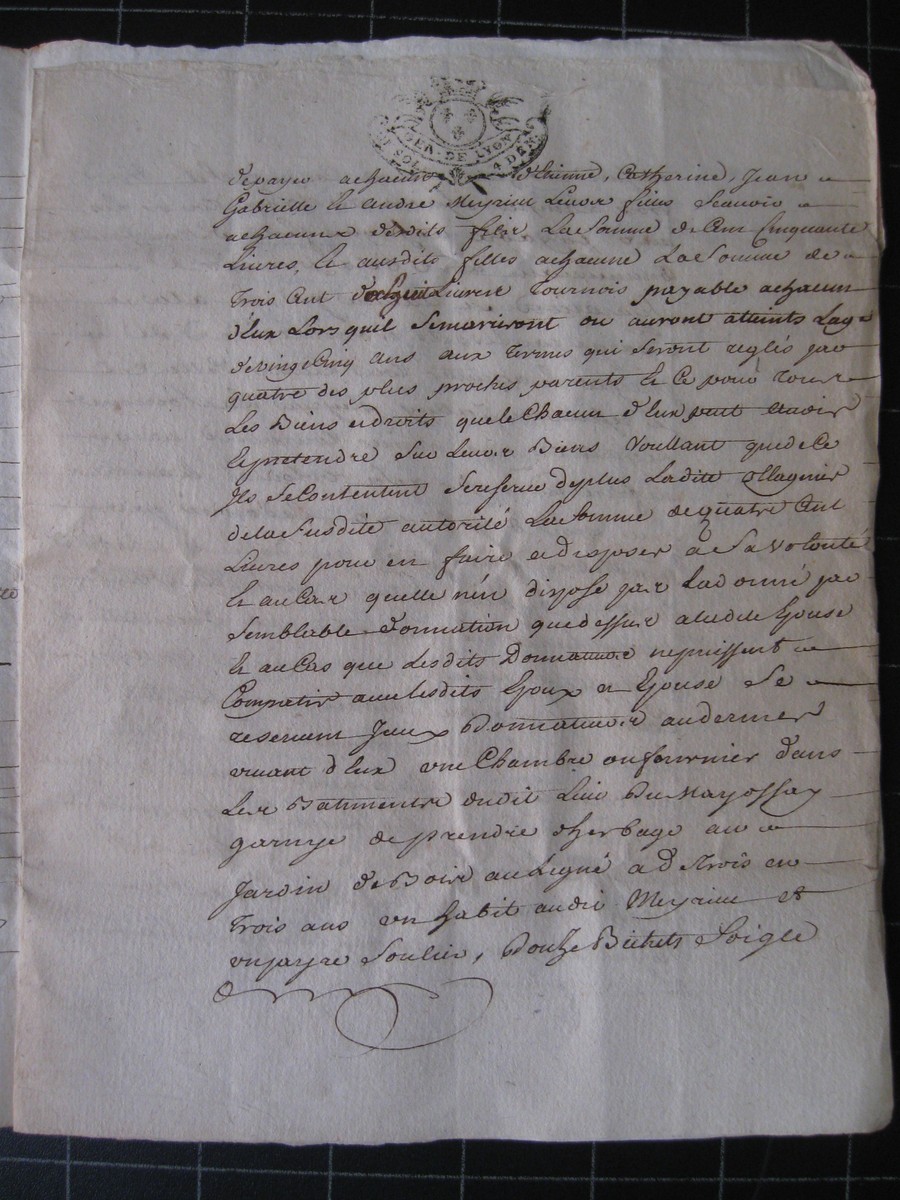 GEN. DE. LYON
SOL 4 DEN
de payer a chacun d'Etienne, Catherine, Jean
Gabrielle et andré Meyrieu Leurs fils Scavoir
a chacun desdits fils La Somme de Cent Cinquante
Livres, et ausdite filles a chacune La Somme de
Trois Cent Livres Tournois payable a chacun
d'Eux Lors quil Semariront ou auront atteints Lage
de vingt Cinq ans aux Termes qui Seront reglés par
quatre des plus proches parents et Ce pour Tous
Les Biens et droits quele Chacun d'Eux peut avoir
et pretendre Sur Leurs Biens Voullant que de Ce
Ils Se Contentent Se reserve de plus Ladite ollagnier
de la Susdite autorité La Somme de quatre Cent
Livres pour en faire a disposer a Sa Volonté
Et au Cas quelle n'en dispose pas La donné par
Semblable donnation que dessus a ladite Epouse
Et au Cas que Lesdits Donnateurs ne puissent
Compatir avec lesdits Epoux et Epouse Se
reservent Iceux Donnateurs au dernier
vivant d'Eux une Chambre ou fournier dans
Les Batiments dudit Lieu Du Mayossax
garnye de prendre d'herbage au
Jardin de Bois au Ligné a d Trois en
Trois ans un habit audit Meyrieu et
un payre Soulier, Douze Bichets Soigle